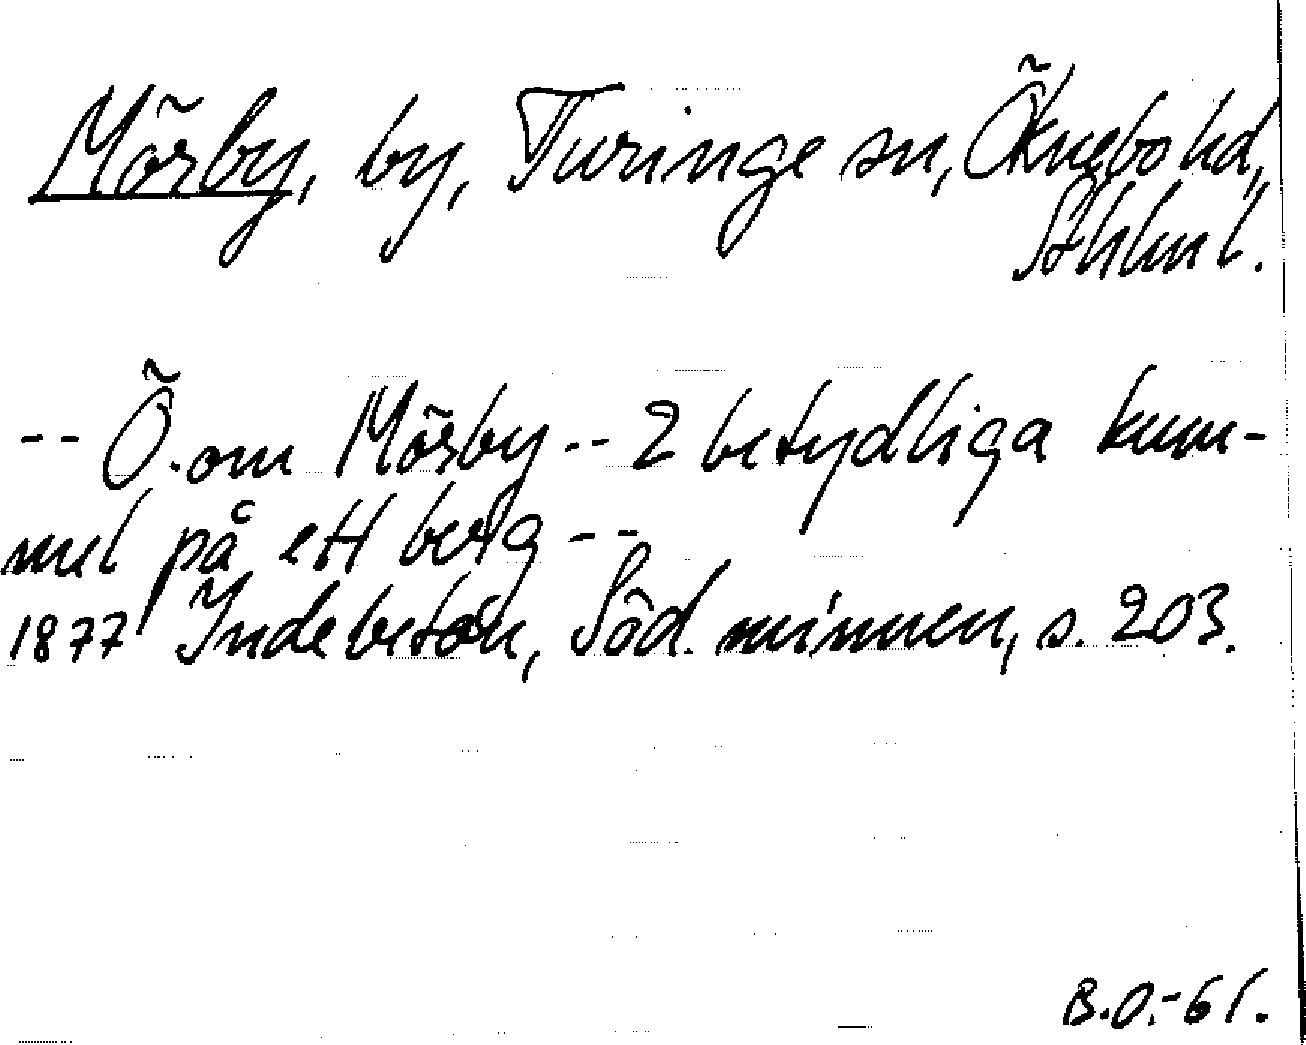 Mörby, by, Turinge sn, Öknebo hd,
Sthlms l.
-- Ö. om Mörby -- 2 betydliga kum-
mel på ett berg --
1877 Indebetou, Söd. minnen, s. 203.
B.O.-61.